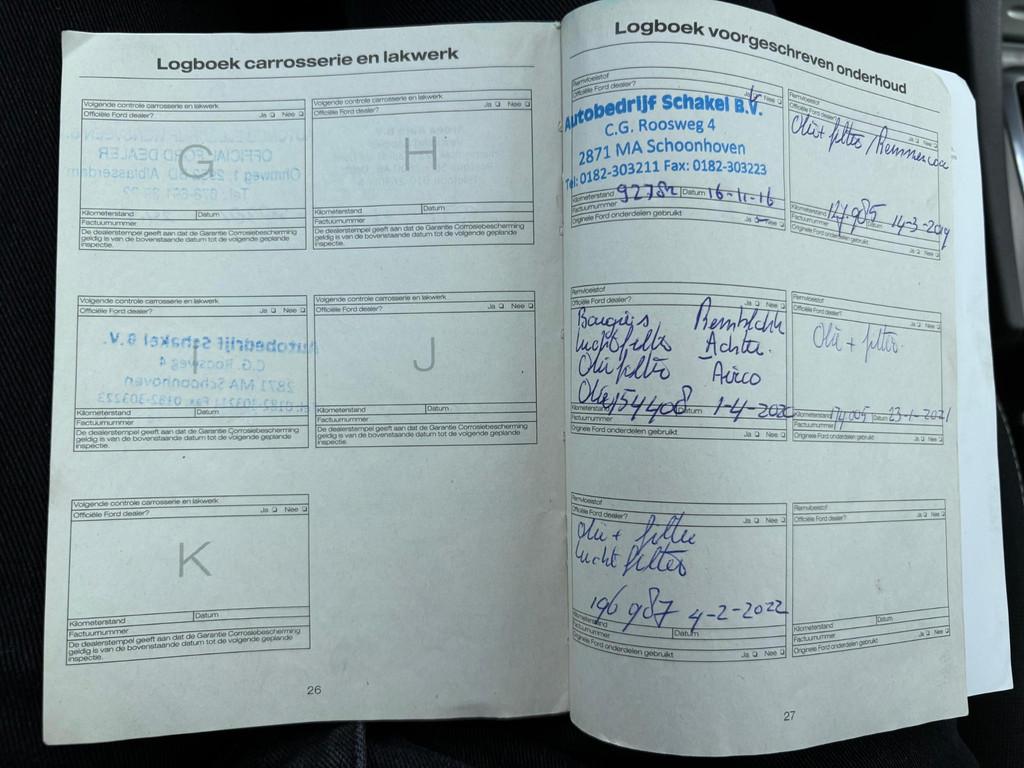 Logboek carrosserie en lakwerk
Volgende controle carrosserie en lakwerk
Officiële Ford dealer? Ja Nee
G
Kilometerstand Datum
Factuurnummer
De dealerstempel geeft aan dat de Garantie Corrosiebescherming
geldig is van de bovenstaande datum tot de volgende geplande
inspectie.
Volgende controle carrosserie en lakwerk
Officiële Ford dealer? Ja Nee
H
Kilometerstand Datum
Factuurnummer
De dealerstempel geeft aan dat de Garantie Corrosiebescherming
geldig is van de bovenstaande datum tot de volgende geplande
inspectie.
Volgende controle carrosserie en lakwerk
Officiële Ford dealer? Ja Nee
I
Kilometerstand Datum
Factuurnummer
De dealerstempel geeft aan dat de Garantie Corrosiebescherming
geldig is van de bovenstaande datum tot de volgende geplande
inspectie.
Volgende controle carrosserie en lakwerk
Officiële Ford dealer? Ja Nee
J
Kilometerstand Datum
Factuurnummer
De dealerstempel geeft aan dat de Garantie Corrosiebescherming
geldig is van de bovenstaande datum tot de volgende geplande
inspectie.
Volgende controle carrosserie en lakwerk
Officiële Ford dealer? Ja Nee
K
Kilometerstand Datum
Factuurnummer
De dealerstempel geeft aan dat de Garantie Corrosiebescherming
geldig is van de bovenstaande datum tot de volgende geplande
inspectie.
26
Logboek voorgeschreven onderhoud
Remvloeistof
Officiële Ford dealer? Ja Nee
Autobedrijf Schakel B.V.
C.G. Roosweg 4
2871 MA Schoonhoven
Tel: 0182-303211 Fax: 0182-303223
Kilometerstand Datum 16-11-16
Factuurnummer
Originele Ford onderdelen gebruikt Ja Nee
Remvloeistof
Officiële Ford dealer? Ja Nee
Olie + filter
Kilometerstand 127.985 Datum 14-3-2019
Factuurnummer
Originele Ford onderdelen gebruikt Ja Nee
Remvloeistof
Officiële Ford dealer? Ja Nee
Bougies
Luchtfilter Achter
Olie filter Airco
Olie
Kilometerstand 154408 Datum 1-4-2020
Factuurnummer
Originele Ford onderdelen gebruikt Ja Nee
Remvloeistof
Officiële Ford dealer? Ja Nee
Olie + filter
Kilometerstand 174005 Datum 23-1-2021
Factuurnummer
Originele Ford onderdelen gebruikt Ja Nee
Remvloeistof
Officiële Ford dealer? Ja Nee
Olie + filter
Lucht filter
196 987 4-2-2022
Kilometerstand Datum
Factuurnummer
Originele Ford onderdelen gebruikt Ja Nee
Remvloeistof
Officiële Ford dealer? Ja Nee
Kilometerstand Datum
Factuurnummer
Originele Ford onderdelen gebruikt Ja Nee
27